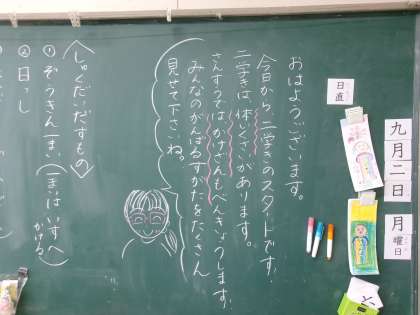 九月二日
月曜日
日直
おはようございます。
今日から、二学きのスタートです。
二学きは、体いくさいがあります。
さんすうではかけざんもべんきょうします。
みんなのがんばるすがたをたくさん
見せて下さいね。
〈しゅくだいだすもの〉
①ぞうきん二まい(一まいはいすへかける)
②日っし